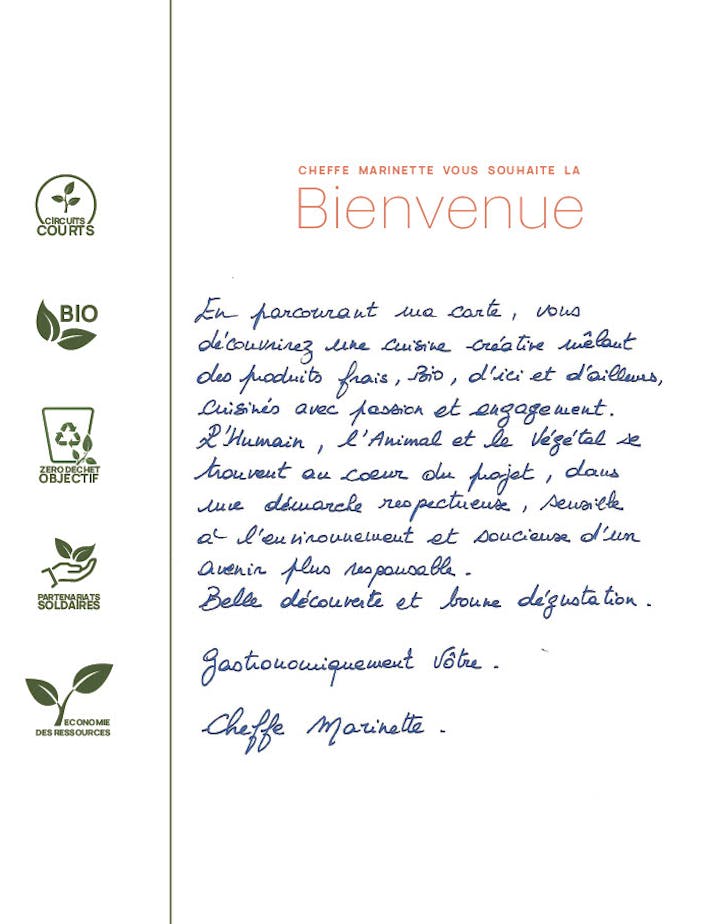 CHEFFE MARINETTE VOUS SOUHAITE LA
Bienvenue
CIRCUITS
COURTS
BIO
ZERO DECHET
OBJECTIF
PARTENARIATS
SOLDAIRES
ECONOMIE
DES RESSOURCES
En parcourant ma carte, vous
découvrirez une cuisine créative mêlant
des produits frais, Bio, d'ici et d'ailleurs,
cuisinés avec passion et engagement.
L'Humain, l'Animal et le Végétal se
trouvent au coeur du projet, dans
une démarche respectueuse, sensible
à l'environnement et soucieuse d'un
avenir plus responsable.
Belle découverte et bonne dégustation.
Gastronomiquement Vôtre.
Cheffe Marinette.